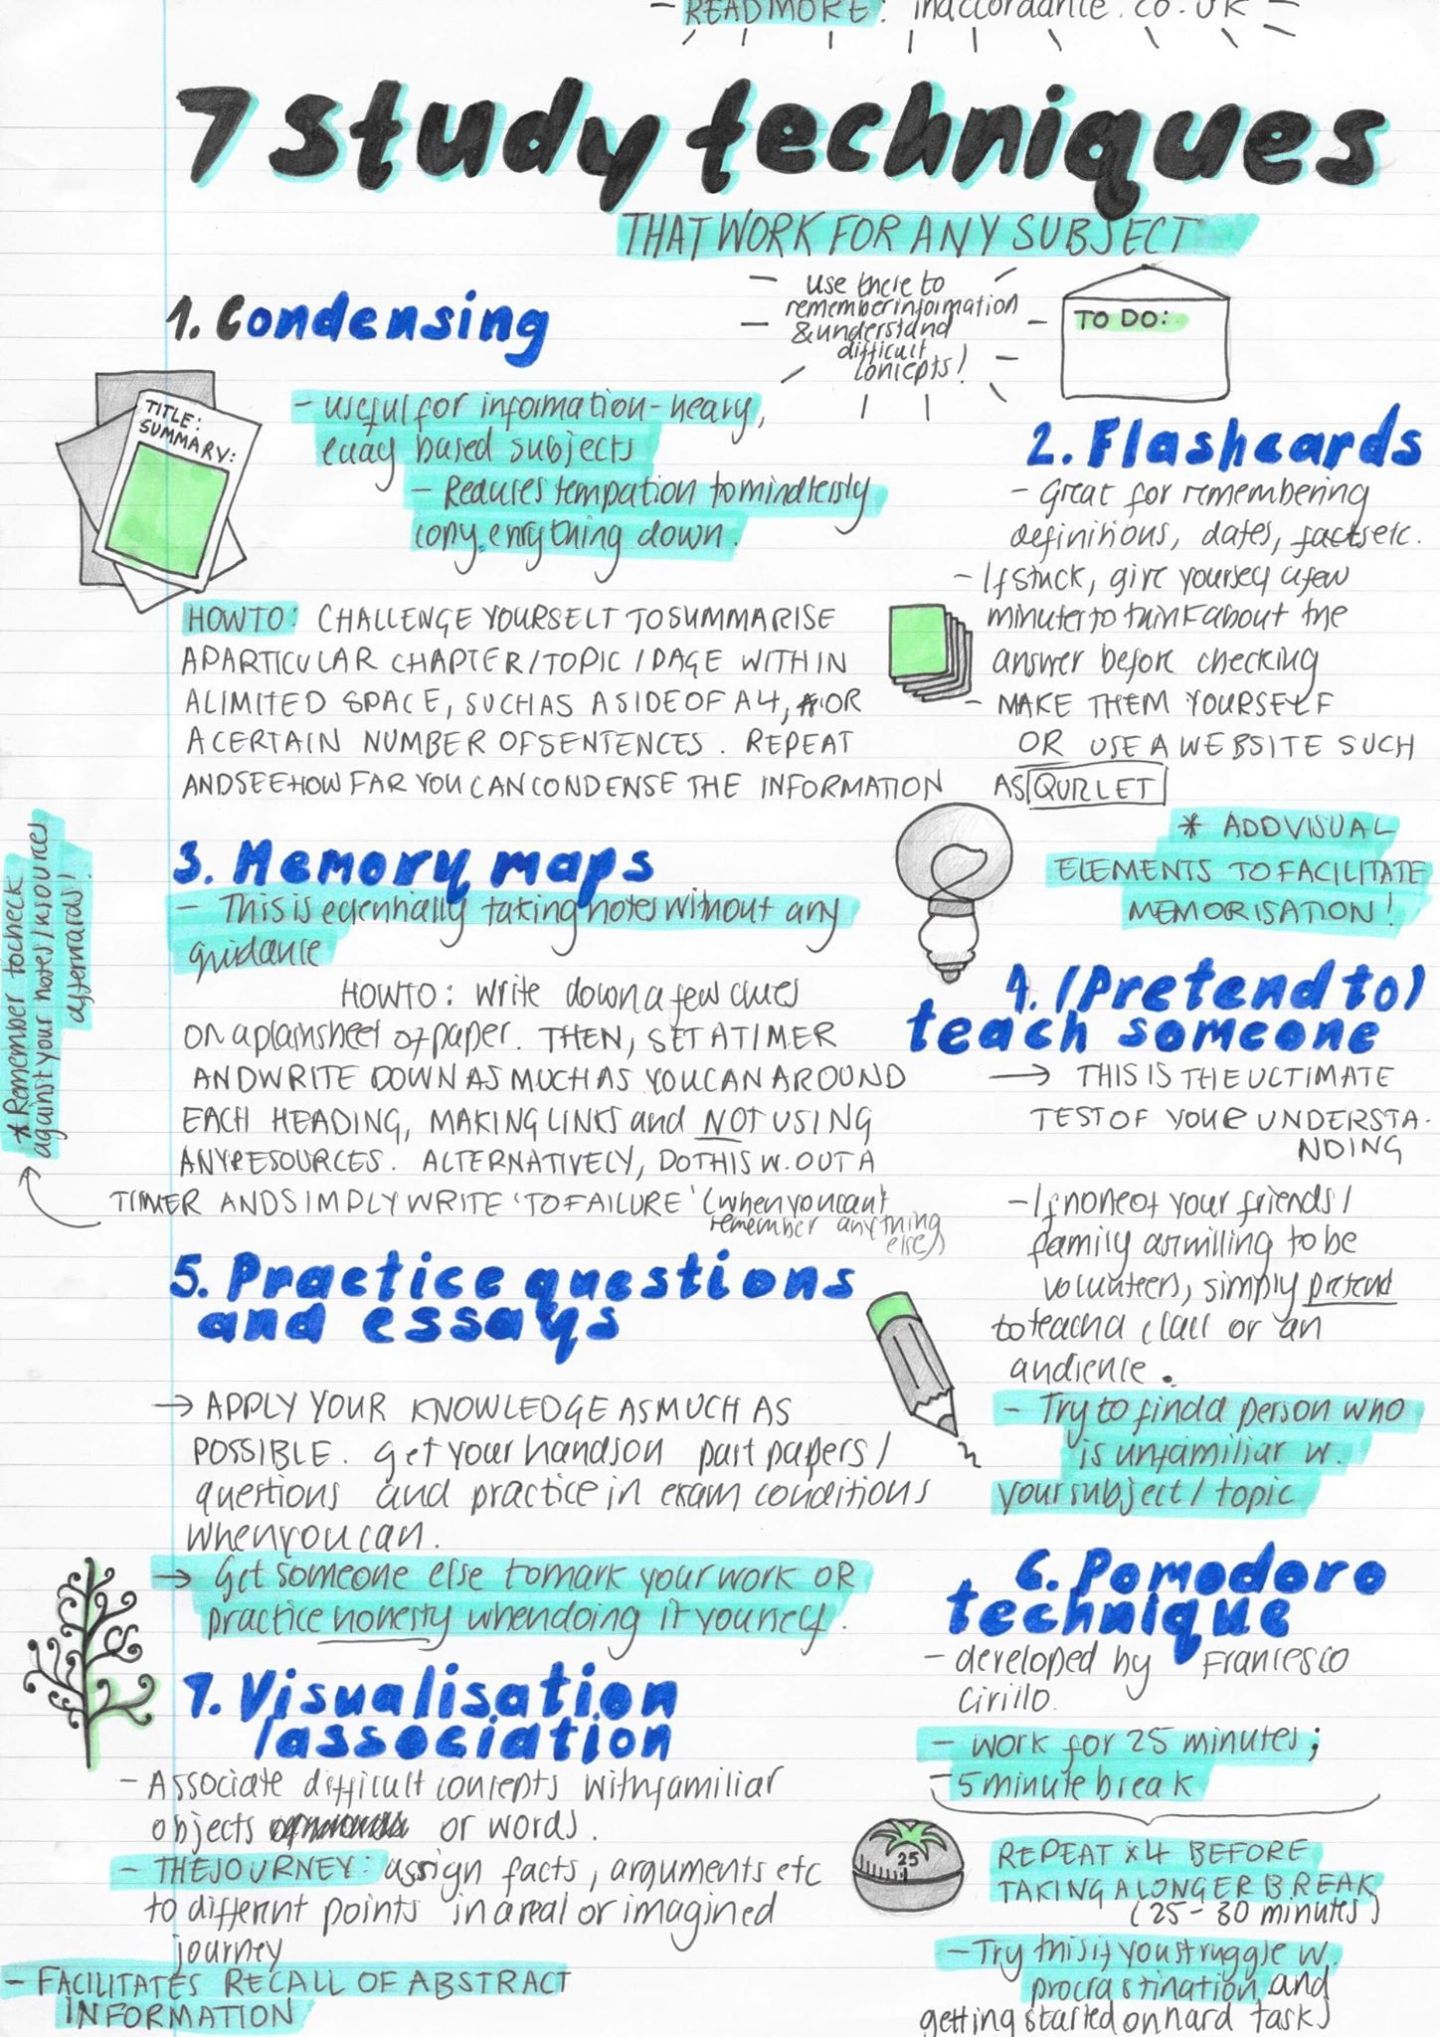 - READ MORE: inaccordance.co.uk -
7 study techniques
THAT WORK FOR ANY SUBJECT
use these to
remember information
& understand
difficult
concepts!
TO DO:
1. Condensing
TITLE:
SUMMARY:
- useful for information-heavy,
essay based subjects
- Reduces temptation to mindlessly
copy everything down.
HOW TO: CHALLENGE YOURSELF TO SUMMARISE
A PARTICULAR CHAPTER/TOPIC/PAGE WITHIN
A LIMITED SPACE, SUCH AS A SIDE OF A4, OR
A CERTAIN NUMBER OF SENTENCES. REPEAT
AND SEE HOW FAR YOU CAN CONDENSE THE INFORMATION
2. Flashcards
- Great for remembering
definitions, dates, facts etc.
- If stuck, give yourself a few
minutes to think about the
answer before checking
- MAKE THEM YOURSELF
OR USE A WEBSITE SUCH
AS QUIZLET
* ADD VISUAL
ELEMENTS TO FACILITATE
MEMORISATION!
3. Memory maps
- This is essentially taking notes without any
guidance
HOW TO: write down a few clues
on a plain sheet of paper. THEN, SET A TIMER
AND WRITE DOWN AS MUCH AS YOU CAN AROUND
EACH HEADING, MAKING LINKS and NOT USING
ANY RESOURCES. ALTERNATIVELY, DO THIS W.OUT A
TIMER AND SIMPLY WRITE 'TO FAILURE' (when you can't
remember anything
else)
* Remember to check
against your notes/resources
afterwards!
4. (Pretend to)
teach someone
→ THIS IS THE ULTIMATE
TEST OF YOUR UNDERSTA-
NDING
- If none of your friends/
family are willing to be
volunteers, simply pretend
to teach a class or an
audience.
- Try to find a person who
is unfamiliar w.
your subject/topic
5. Practice questions
and essays
→ APPLY YOUR KNOWLEDGE AS MUCH AS
POSSIBLE. get your hands on past papers/
questions and practice in exam conditions
when you can.
→ Get someone else to mark your work OR
practice honesty when doing it yourself.
6. Pomodoro
technique
- developed by Francesco
Cirillo.
- work for 25 minutes;
- 5 minute break
25
REPEAT x4 BEFORE
TAKING A LONGER BREAK
(25-30 minutes)
- Try this if you struggle w.
procrastination and
getting started on hard tasks
7. Visualisation
/association
- Associate difficult concepts with familiar
objects or words.
- THE JOURNEY: assign facts, arguments etc
to different points in a real or imagined
journey
- FACILITATES RECALL OF ABSTRACT
INFORMATION